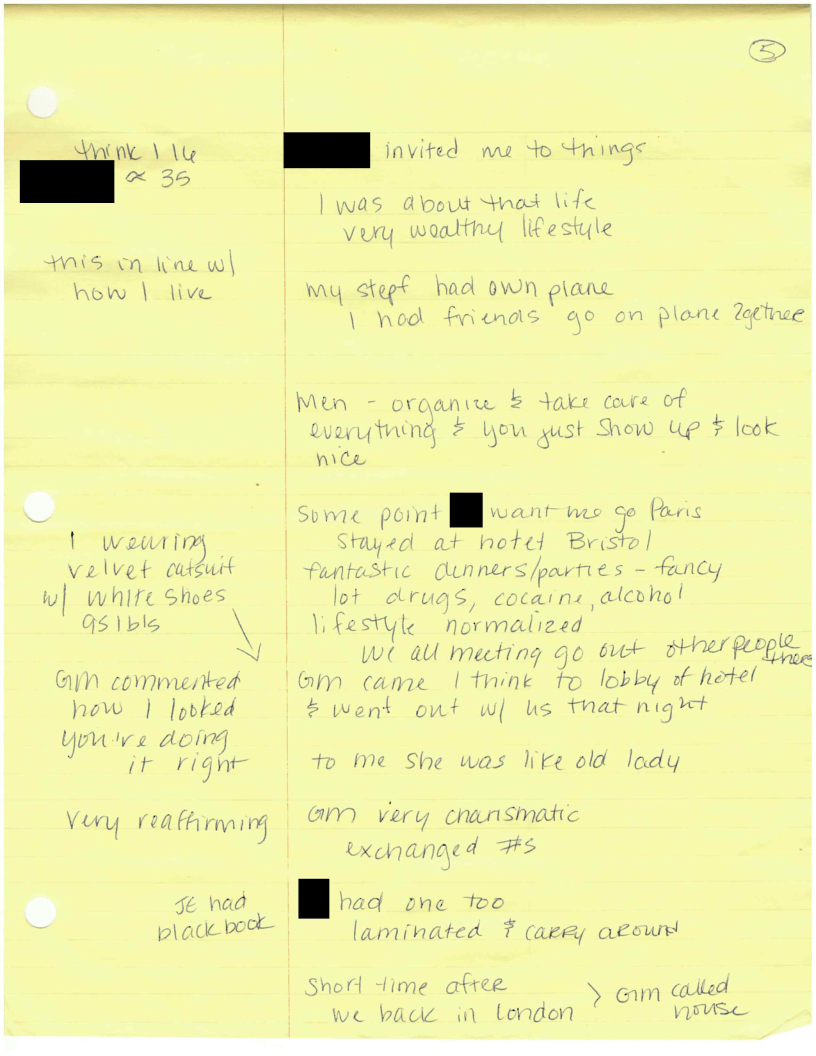 5
think I 16
∝ 35
invited me to things
I was about that life
very wealthy lifestyle
this in line w/
how I live
my stepf had own plane
I had friends go on plane 2gether
Men - organize & take care of
everything & you just show up & look
nice
Some point want me go Paris
Stayed at hotel Bristol
I wearing
velvet catsuit
w/ white shoes
95 lbs
fantastic dinners/parties - fancy
lot drugs, cocaine, alcohol
lifestyle normalized
we all meeting go out other people
there
GM commented
how I looked
you're doing
it right
GM came I think to lobby of hotel
& went out w/ us that night
to me she was like old lady
very reaffirming
GM very charismatic
exchanged #s
JE had
black book
had one too
laminated & carry around
Short time after
we back in London
> GM called
house